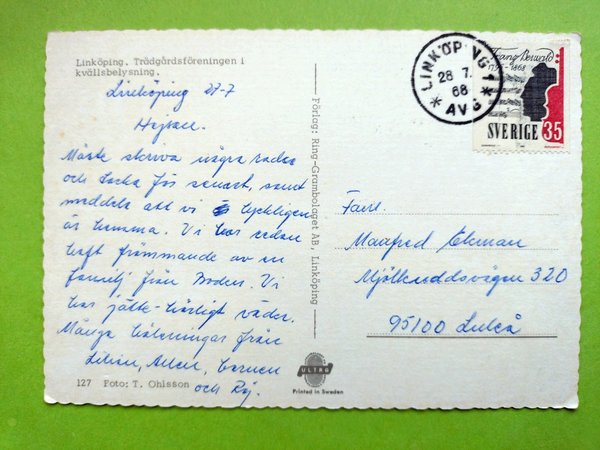 Linköping. Trädgårdsföreningen i
kvällsbelysning.
Linköping 27-7
Måste skriva några rader
och tacka för senast, samt
meddela att vi är lyckligen
är hemma. Vi har redan
haft främmande av en
familj från Boden. Vi
har jätte-härligt väder.
Många hälsningar från
Lilian, Allen,
och Roj.
127 Foto: T. Ohlsson
Förlag: Ring-Grambolaget AB, Linköping
LINKÖPING 1
28 7.
68
* AVG *
Franz Berwald
1796-1868
SVERIGE 35
Fam.
Manfred Ekman
Mjölkuddsvägen 320
95100 Luleå
ULTRA
Printed in Sweden